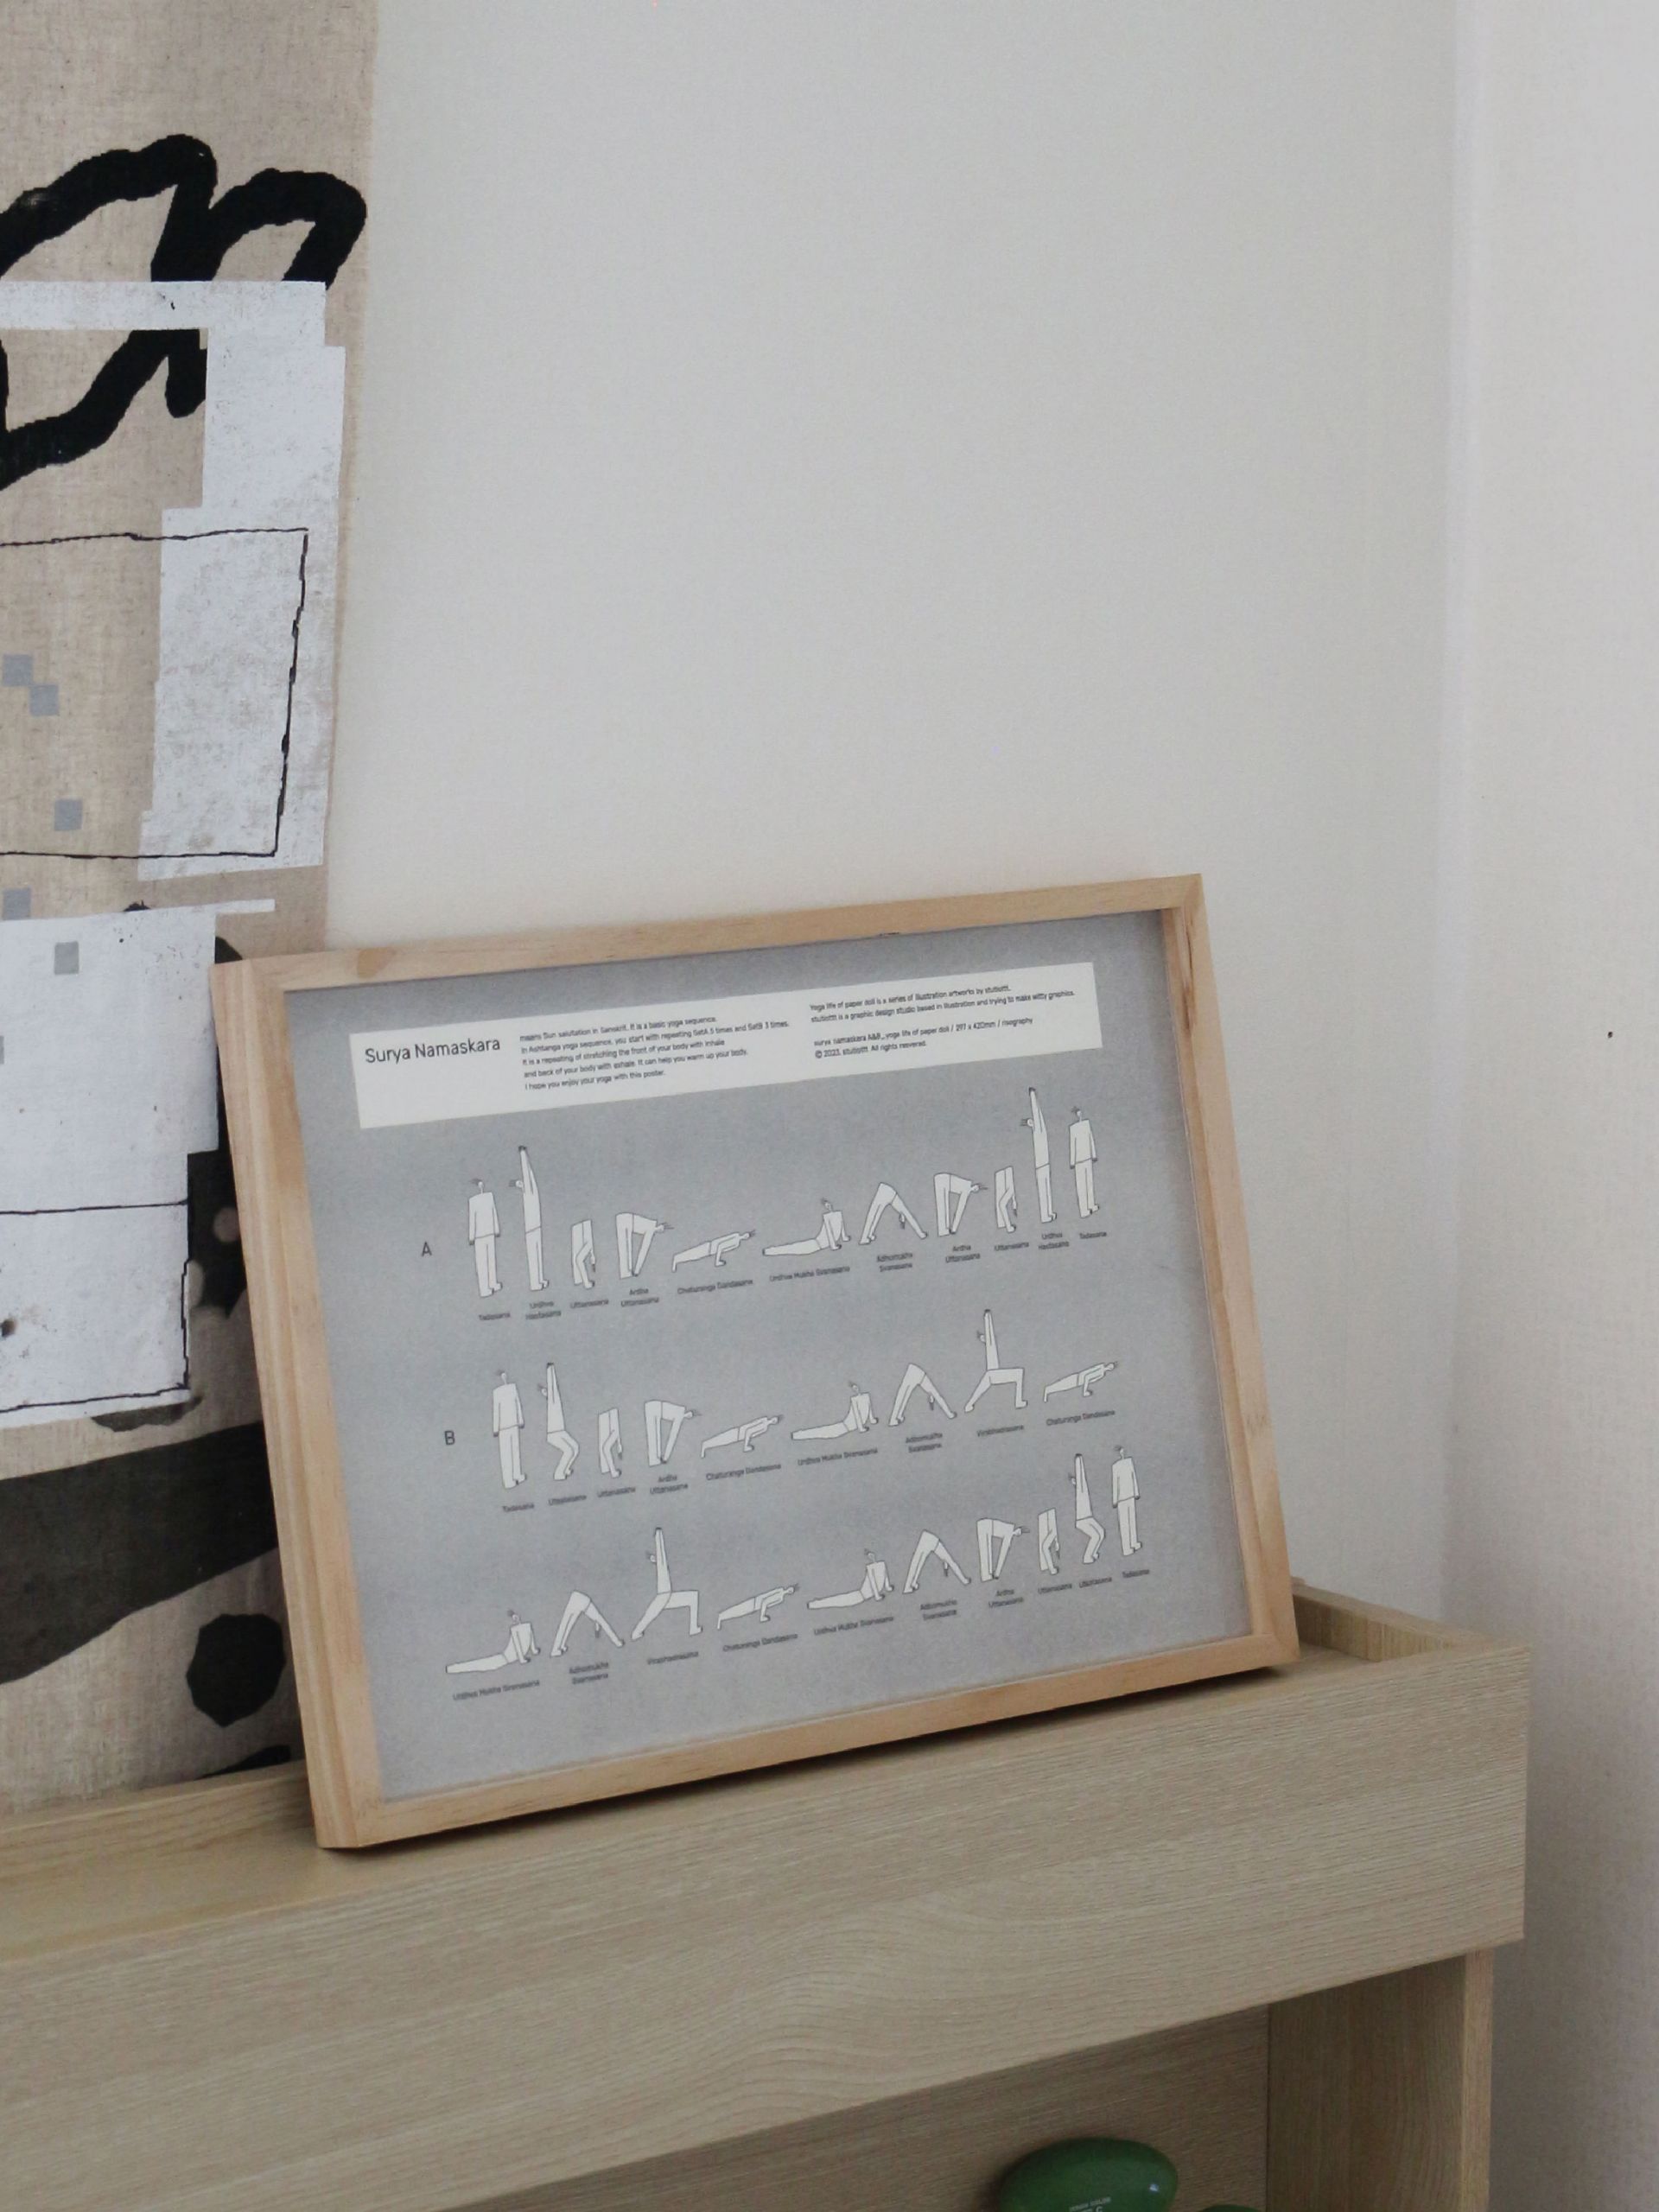 Surya Namaskara
means Sun salutation in Sanskrit. It is a basic yoga sequence.
In Ashtanga yoga sequence, you start with repeating SetA 5 times and SetB 3 times.
It is a repeating of stretching the front of your body with inhale
and back of your body with exhale. It can help you warm up your body.
I hope you enjoy your yoga with this poster.
Yoga life of paper doll is a series of illustration artworks by stubyttt.
stubyttt is a graphic design studio based in illustration and trying to make witty graphics.
surya namaskara A&B_yoga life of paper doll / 297 x 420mm / risography
© 2023. stubyttt All rights reserved.
A
Tadasana
Urdhva
Hastasana
Uttanasana
Ardha
Uttanasana
Chaturanga Dandasana
Urdhva Mukha Svanasana
Adhomukha
Svanasana
Ardha
Uttanasana
Uttanasana
Urdhva
Hastasana
Tadasana
B
Tadasana
Utkatasana
Uttanasana
Ardha
Uttanasana
Chaturanga Dandasana
Urdhva Mukha Svanasana
Adhomukha
Svanasana
Chaturanga Dandasana
Urdhva Mukha Svanasana
Adhomukha
Svanasana
Chaturanga Dandasana
Urdhva Mukha Svanasana
Adhomukha
Svanasana
Ardha
Uttanasana
Uttanasana
Utkatasana
Tadasana